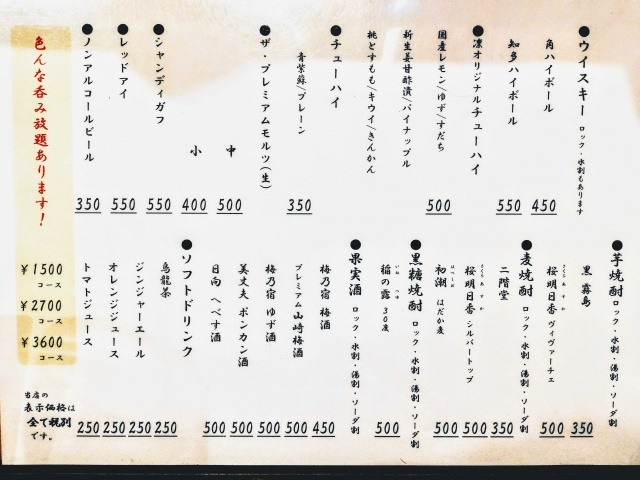 ●ウイスキー ロック・水割もあります
角ハイボール 450
知多ハイボール 550
●凛オリジナルチューハイ
国産レモン/ゆず/すだち 500
新生姜甘酢漬/パイナップル
桃とすもも/キウイ/きんかん
●チューハイ
青紫蘇/プレーン 350
●ザ・プレミアムモルツ(生)
中 500
小 400
●シャンディガフ 550
●レッドアイ 550
●ノンアルコールビール 350
●芋焼酎 ロック・水割・湯割・ソーダ割
黒霧島 350
桜明日香 ヴィヴァーチェ 500
さくらあすか
●麦焼酎 ロック・水割・湯割・ソーダ割
二階堂 350
桜明日香 シルバートップ 500
さくらあすか
初潮 はだか麦 500
はつしお
●黒糖焼酎 ロック・水割・湯割・ソーダ割
稲の露 30度 500
いね つゆ
●果実酒 ロック・水割・湯割・ソーダ割
梅乃宿 梅酒 450
プレミアム 山崎梅酒 500
梅乃宿 ゆず酒 500
美丈夫 ポンカン酒 500
日向 へべす酒 500
●ソフトドリンク
烏龍茶 250
ジンジャーエール 250
オレンジジュース 250
トマトジュース 250
色んな呑み放題あります!
¥1500コース
¥2700コース
¥3600コース
当店の
表示価格は
全て税別
です。